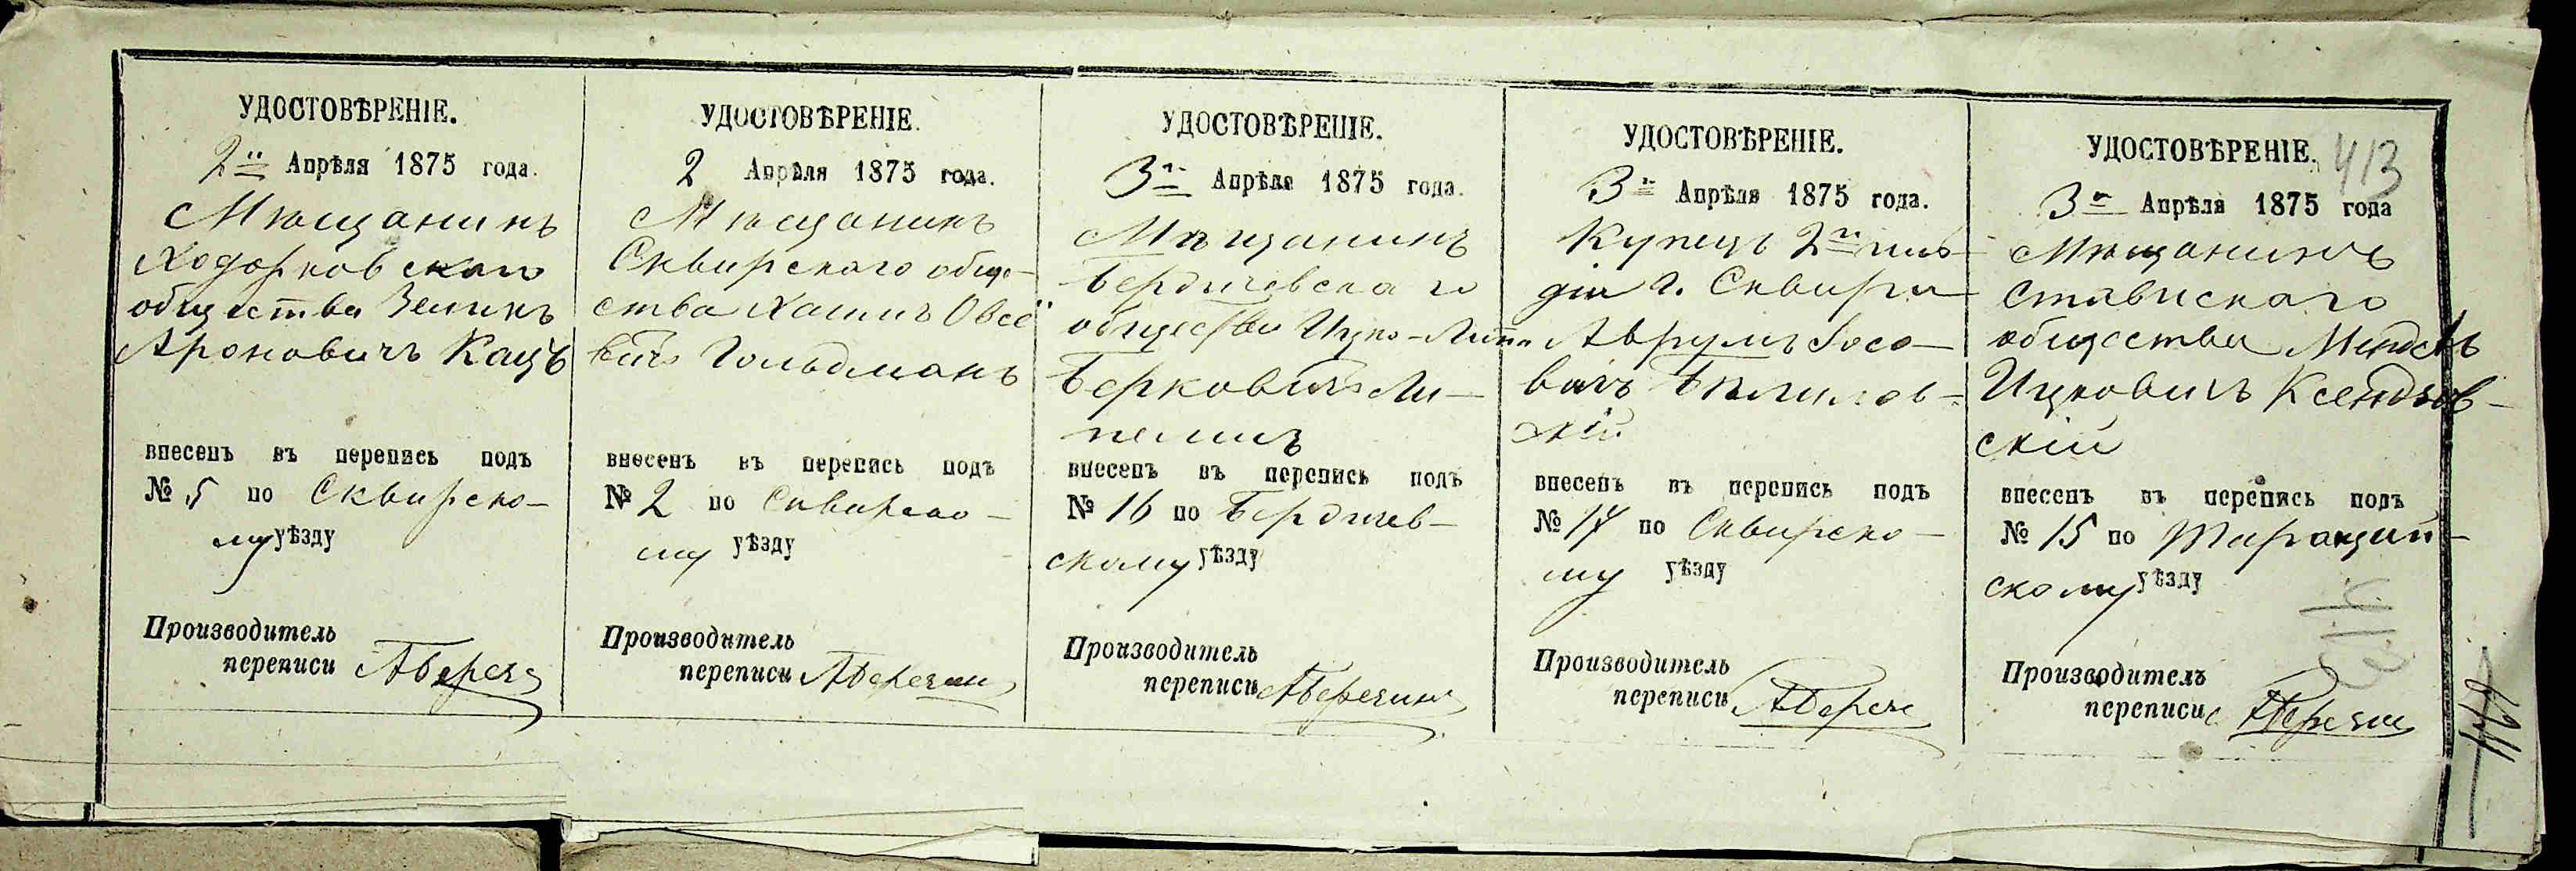 УДОСТОВѢРЕНІЕ.
2го Апрѣля 1875 года.
Мѣщанинъ
Ходорковскаго
общества Зеликъ
Ароновичъ Кацъ
внесенъ въ перепись подъ
№ 5 по Сквирско-
му уѣзду
Производитель
переписи
УДОСТОВѢРЕНІЕ.
2 Апрѣля 1875 года.
Мѣщанинъ
Сквирскаго обще-
ства Хаимъ Овсе
вичъ Гольдманъ
внесенъ въ перепись подъ
№ 2 по Сквирско-
му уѣзду
Производитель
переписи
УДОСТОВѢРЕНІЕ.
3го Апрѣля 1875 года.
Мѣщанинъ
Бердичевскаго
общества Ицко-Липа
Берковичъ Ли-
внесенъ въ перепись подъ
№ 16 по Бердичев-
скому уѣзду
Производитель
переписи
УДОСТОВѢРЕНІЕ.
3го Апрѣля 1875 года.
Купецъ 2й гиль-
діи г. Сквиры
Аврумъ Іосо-
вичъ Бѣлилов-
скій
внесенъ въ перепись подъ
№ 17 по Сквирско-
му уѣзду
Производитель
переписи
УДОСТОВѢРЕНІЕ.
413
3го Апрѣля 1875 года
Мѣщанинъ
Ставискаго
общества Мендель
Ицковичъ Ксендзов-
скій
внесенъ въ перепись подъ
№ 15 по Таращан-
скому уѣзду
Производитель
переписи